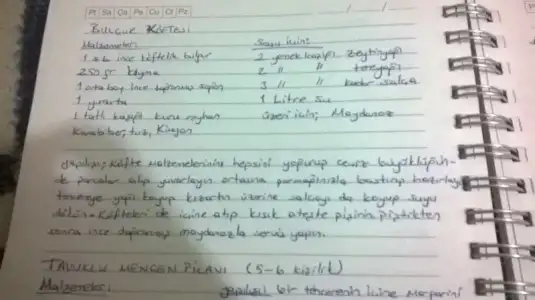 Pt Sa Ça Pe Cu Ct Pz
BULGUR KÖFTESİ
Malzemeler: Suyu için:
1 su ince köftelik bulgur 2 yemek kaşığı zeytinyağı
250 gr kıyma 2 " " tereyağı
1 orta boy ince doğranmış soğan 3 " " kadar salça
1 yumurta 1 Litre su
1 tatlı kaşığı kuru reyhan Üzeri için; Maydanoz
Karabiber, tuz, Kimyon
Yapılışı; Köfte malzemelerinin hepsini yoğurup ceviz büyüklüğün-
de parçalar alıp yuvarlayın ortasına parmağınızla bastırıp hazırlayın
tencereye yağı koyup kızartın üzerine salçayı da koyup suyu
dökün. Köfteleri de içine atıp kısık ateşte pişirin Piştikten
sonra ince doğranmış maydanozla servis yapın.
TAVUKLU MENGEN PİLAVI (5-6 kişilik)
Malzemeler: yapılışı bir tencerenin içine Margarini